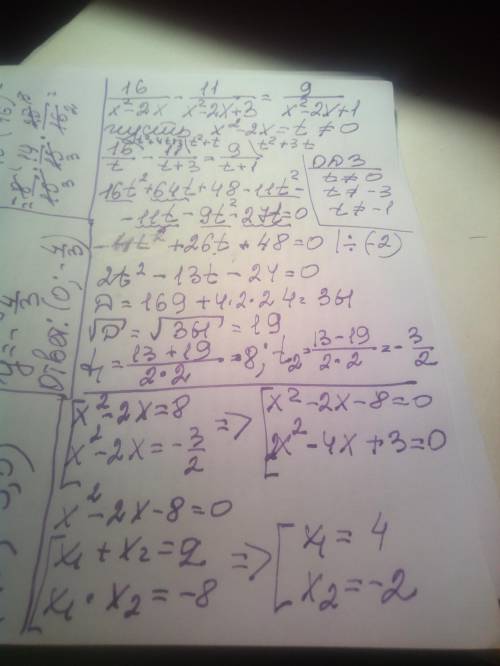 16/(x²-2x) - 11/(x²-2x+3) = 9/(x²-2x+1)
пусть x²-2x=t ≠0
16/t - 11/(t+3) = 9/(t+1)
ОДЗ
t≠0
t≠-3
t≠-1
16t²+64t+48-11t²-
-11t-9t²-27t=0
-4t²+26t+48=0 |÷(-2)
2t²-13t-24=0
D=169+4·2·24=361
√D=√361=19
t₁=(13+19)/(2·2)=8; t₂=(13-19)/(2·2)=-3/2
[x²-2x=8 => [x²-2x-8=0
[x²-2x=-3/2 [2x²-4x+3=0
x²-2x-8=0
[x₁+x₂=2 => [x₁=4
[x₁·x₂=-8 [x₂=-2
y=-4/3
Ответ: (0;-4/3)